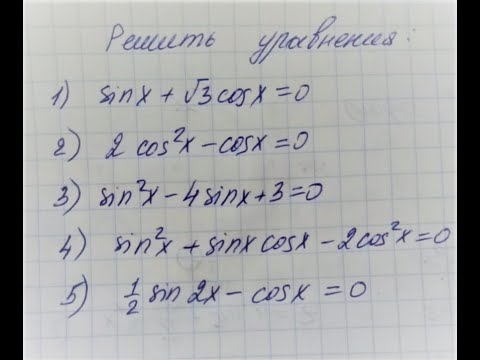 Решить уравнения:
1) sinx + √3 cosx = 0
2) 2 cos²x - cosx = 0
3) sin²x - 4 sinx + 3 = 0
4) sin²x + sinx cosx - 2cos²x = 0
5) ½ sin 2x - cosx = 0